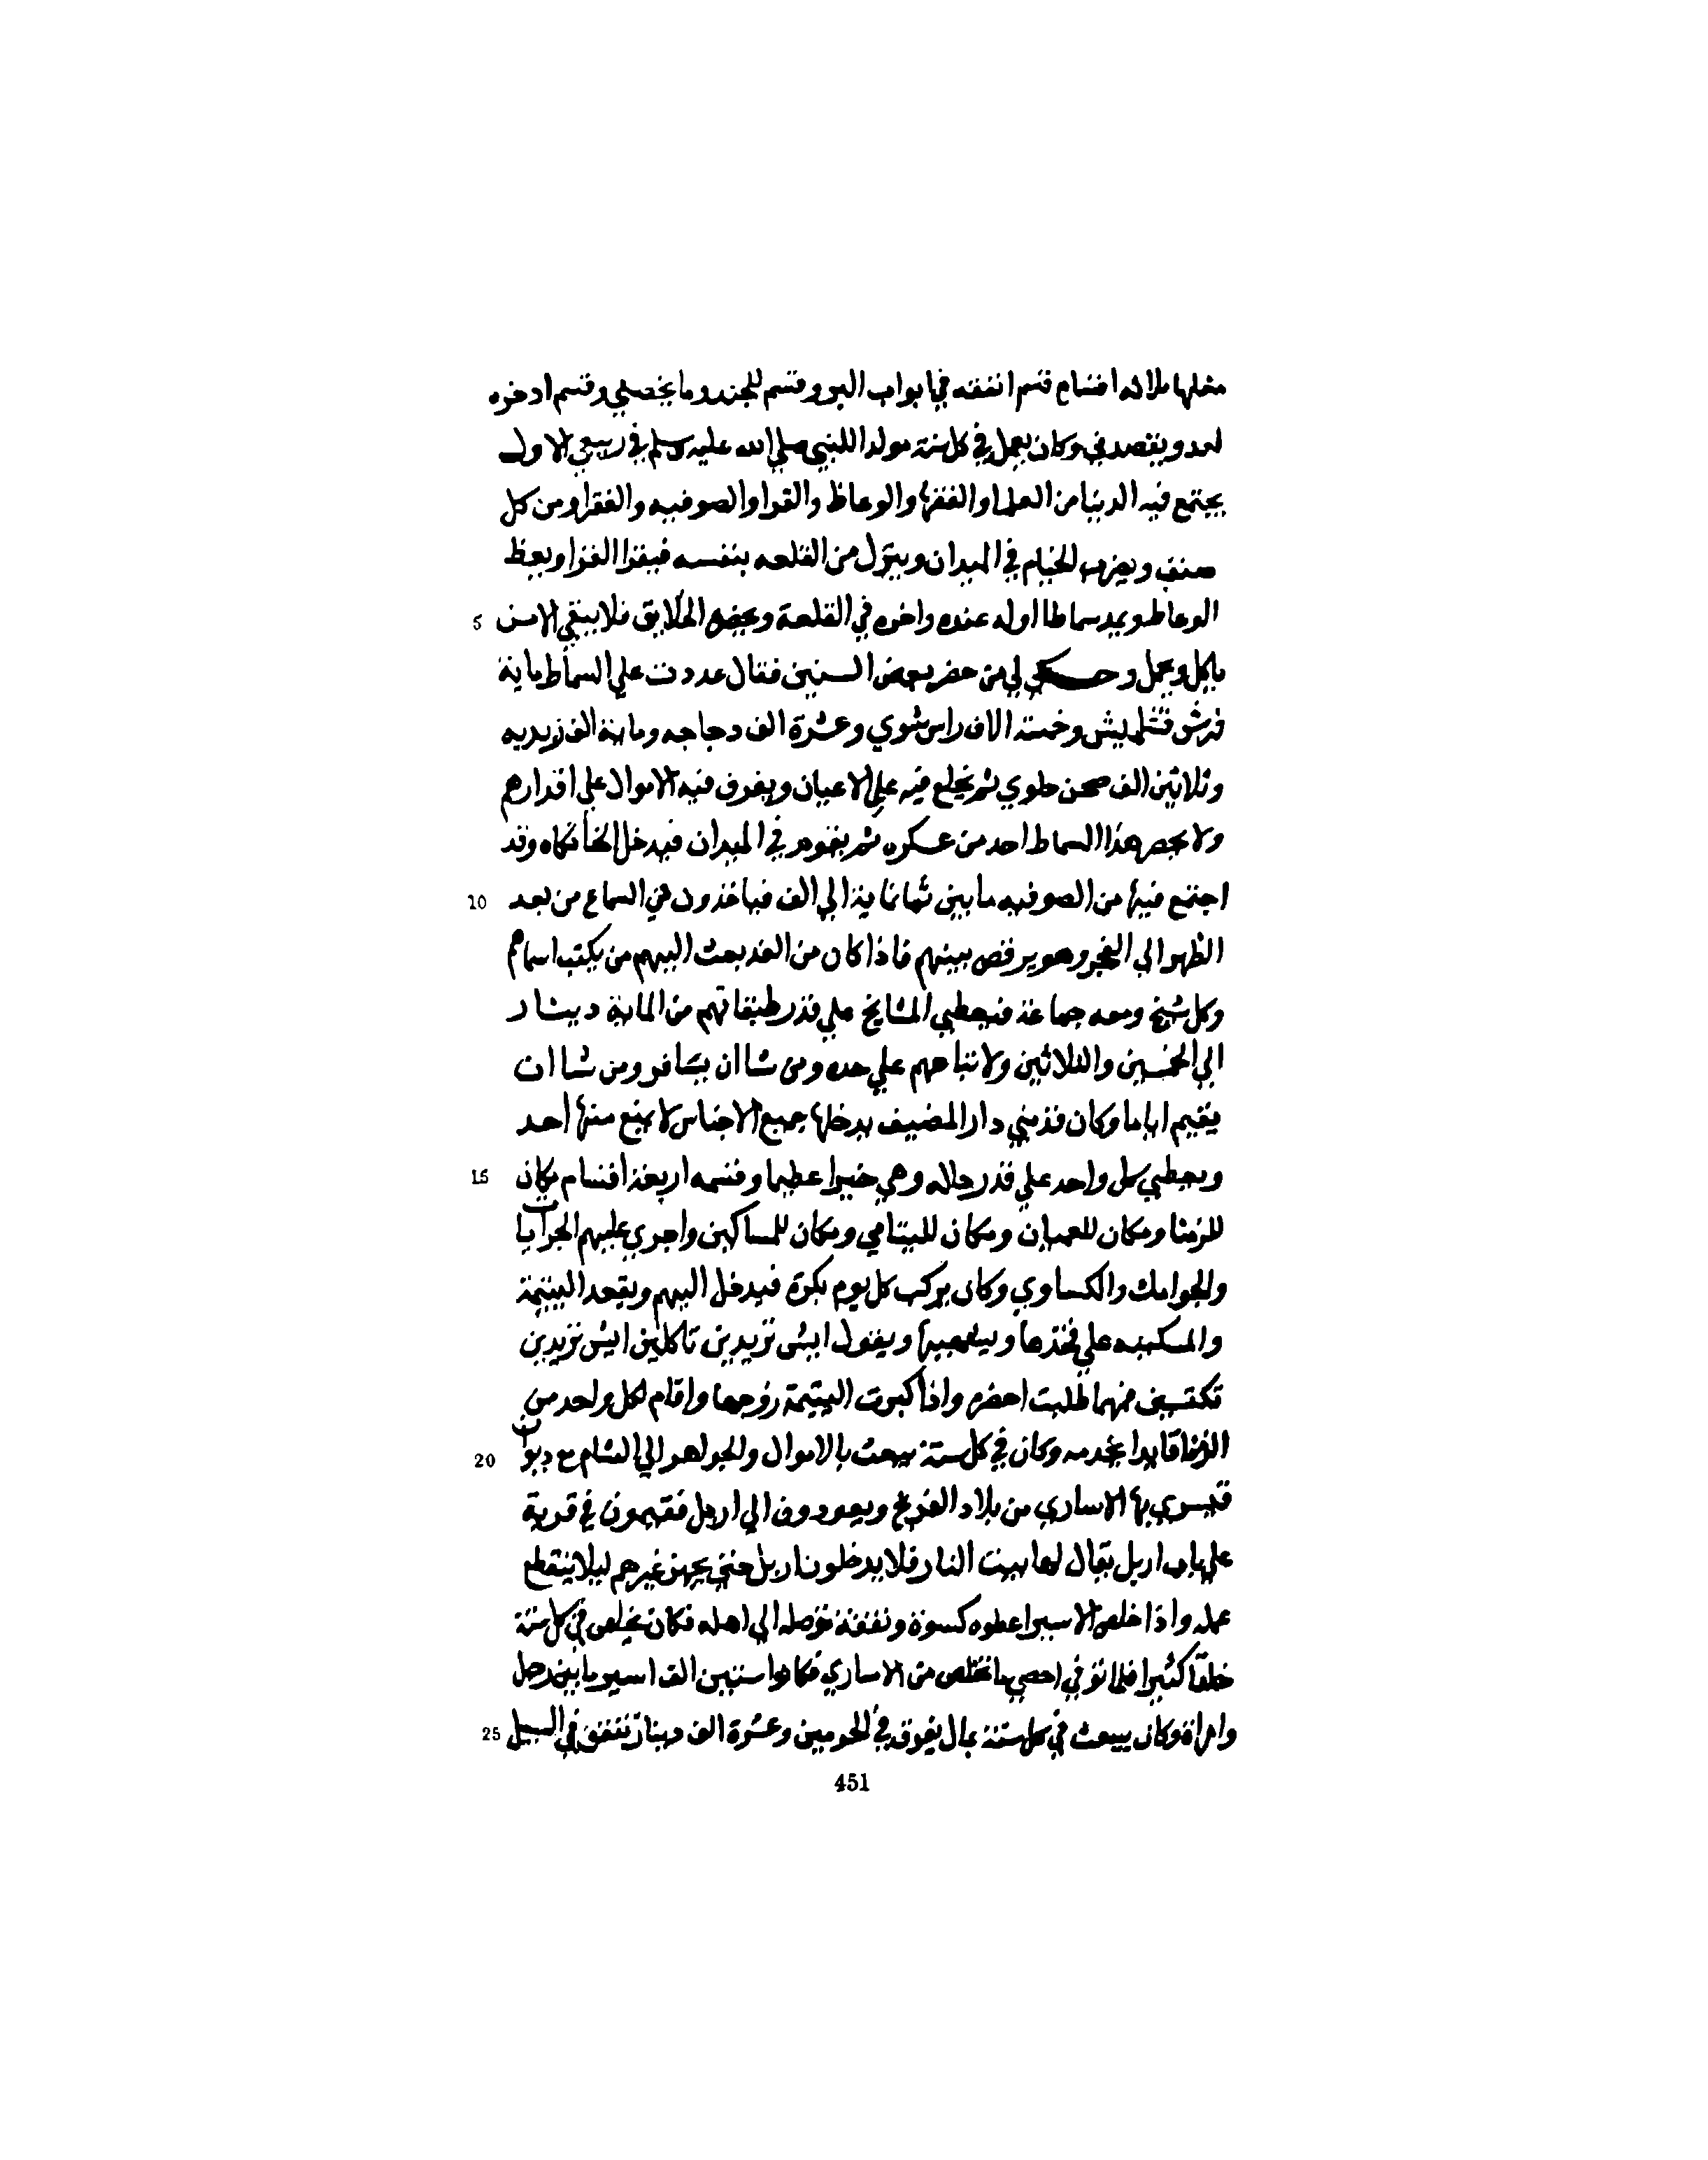 مغلها ثلاثه اقسام قسم انفقه في ابواب البر وقسم للجند وما يخصني وقسم ادخره
لعدو يقصدني وكان يعمل في كل سنة مولد اللنبي صلي الله عليه وسلم في ربيع الاول
يجتمع فيه الدنيا من العلما والفقها والوعاظ والقرا والصوفيه والفقرا ومن كل
صنف ويضرب الخيام في الميدان وينزل من القلعه بنفسه فيقرا القرا ويعظ
الوعاظ ويمد سماطا اوله عنده واخره في القلعة ويحضر الخلايق فلا يبقي الا من 5
ياكل ويحمل وحكي لي من حضر بعض السنين فقال عددت علي السماط ماية
فرش قشلميش وخمسة الاف راس شوي وعشرة الف دجاجه وماية الف زبديه
وثلاثين الف صحن حلوي ثم يخلع فيه علي الاعيان ويفرق فيه الاموال علي اقدارهم
ولا يحضر هذا السماط احد من عسكره ثم يقوم في الميدان فيدخل الخانكاه وقد
اجتمع فيها من الصوفيه ما بين ثمانماية الي الف فياخذون في السماع من بعد 10
الظهر الي الفجر وهو يرقص بينهم فاذا كان من الغد بعث اليهم من يكتب اسماهم
وكل شيخ ومعه جماعة فيعطي المشايخ علي قدر طبقاتهم من الماية دينار
الي الخمسين والثلاثين ولاتباعهم علي حده ومن شا ان يسافر ومن شا ان
يقيم اياما وكان قد بني دار المضيف يدخلها جميع الاجناس لا يمنع منها احد
ويعطي كل واحد علي قدر حاله وهي خيرا عظيما وقسمه اربعة اقسام مكان 15
للزمنا ومكان للعميان ومكان لليتامي ومكان للمساكين واجري عليهم الجرايات
والجوامك والكساوي وكان يركب كل يوم بكرة فيدخل اليهم ويقعد اليتيمة
والمسكينه علي فخذها ويلهيها ويقول ايش تريدين تاكلين ايش تريدين
تكتسين فمهما طلبت احضره واذا كبرت اليتيمة زوجها واقام لكل واحد من
الزمنا قايدا يخدمه وكان في كل سنة يبعث بالاموال والجواهر الي الشام مع ديوان 20
فيشري بها الاساري من بلاد الفرنج ويعودون الي اربل فيقيمون في قرية
علي باب اربل يقال لها بيت النار فلا يدخلون اربل حتي يجهز غيرهم ليلا ينقطع
عمله واذا خلص الاسير اعطوه كسوة ونفقة توصله الي اهله فكان يخلص في كل سنة
خلقا كثيرا فلما توفي احصي ما خلص من الاساري فكانوا ستين الف اسير ما بين رجل
وامراة وكان يبعث في كل سنة بمال يفرق في الحرمين وعشرة الف دينار تنفق في السبيل 25
451